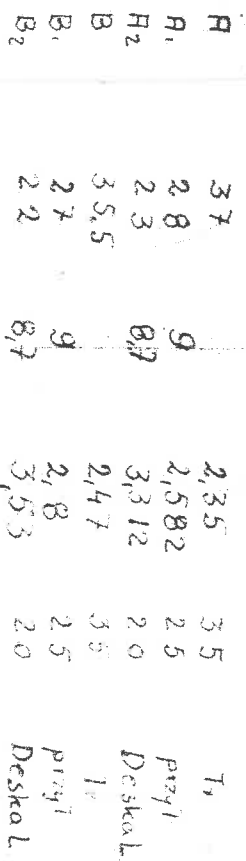 A 37 2,35 35
A₁ 28 9 2,582 25 przył
A₂ 23 8,7 3,312 20 Deskal
B 35,5 2,47 35
B₁ 27 9 2,8 25 przył
B₂ 22 8,7 3,53 20 Deskal